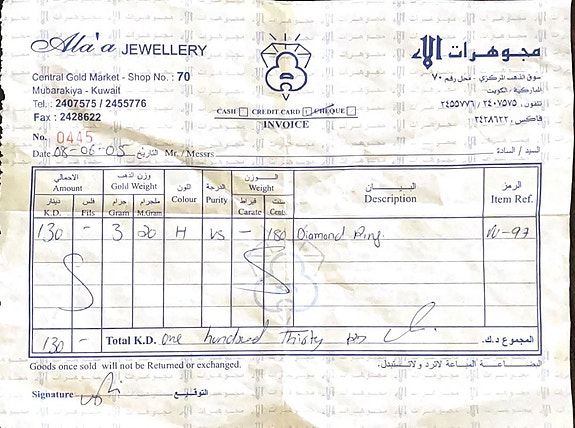 Ala'a JEWELLERY
مجوهرات آلاء
Central Gold Market - Shop No. : 70
سوق الذهب المركزي - محل رقم ٧٠
Mubarakiya - Kuwait
المباركية - الكويت
Tel. : 2407575 / 2455776
تلفون : ٢٤٠٧٥٧٥ / ٢٤٥٥٧٧٦
Fax : 2428622
فاكس : ٢٤٢٨٦٢٢
CASH CREDIT CARD CHEQUE
INVOICE
No. 0445
Date 08-06-05 التاريخ Mr. / Messrs السيد / السادة :
الاجمالي وزن الذهب اللون الدرجة الوزن البيان الرمز
Amount Gold Weight Colour Purity Weight Description Item Ref.
دينار فلس جرام ملجرام قيراط سنت
K.D. Fils Gram M.Gram Carate Cents
130 - 3 20 H VS - 180 Diamond Ring. W-97
130 - Total K.D. one hundred Thirty المجموع د.ك.
Goods once sold will not be Returned or exchanged.
البضاعة المباعة لاترد ولاتستبدل.
Signature التوقيع